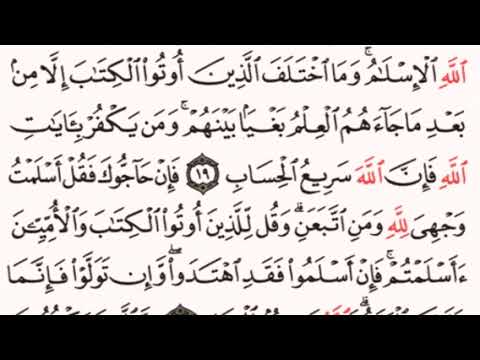 اللَّهِ الْإِسْلَٰمُ ۗ وَمَا اخْتَلَفَ الَّذِينَ أُوتُوا الْكِتَٰبَ إِلَّا مِنۢ
بَعْدِ مَا جَآءَهُمُ الْعِلْمُ بَغْيًۢا بَيْنَهُمْ ۗ وَمَن يَكْفُرْ بِـَٔايَٰتِ
اللَّهِ فَإِنَّ اللَّهَ سَرِيعُ الْحِسَابِ ١٩ فَإِنْ حَآجُّوكَ فَقُلْ أَسْلَمْتُ
وَجْهِىَ لِلَّهِ وَمَنِ اتَّبَعَنِ ۗ وَقُل لِّلَّذِينَ أُوتُوا الْكِتَٰبَ وَالْأُمِّيِّـۧنَ
ءَأَسْلَمْتُمْ ۚ فَإِنْ أَسْلَمُوا فَقَدِ اهْتَدَوا ۖ وَّإِن تَوَلَّوْا فَإِنَّمَا